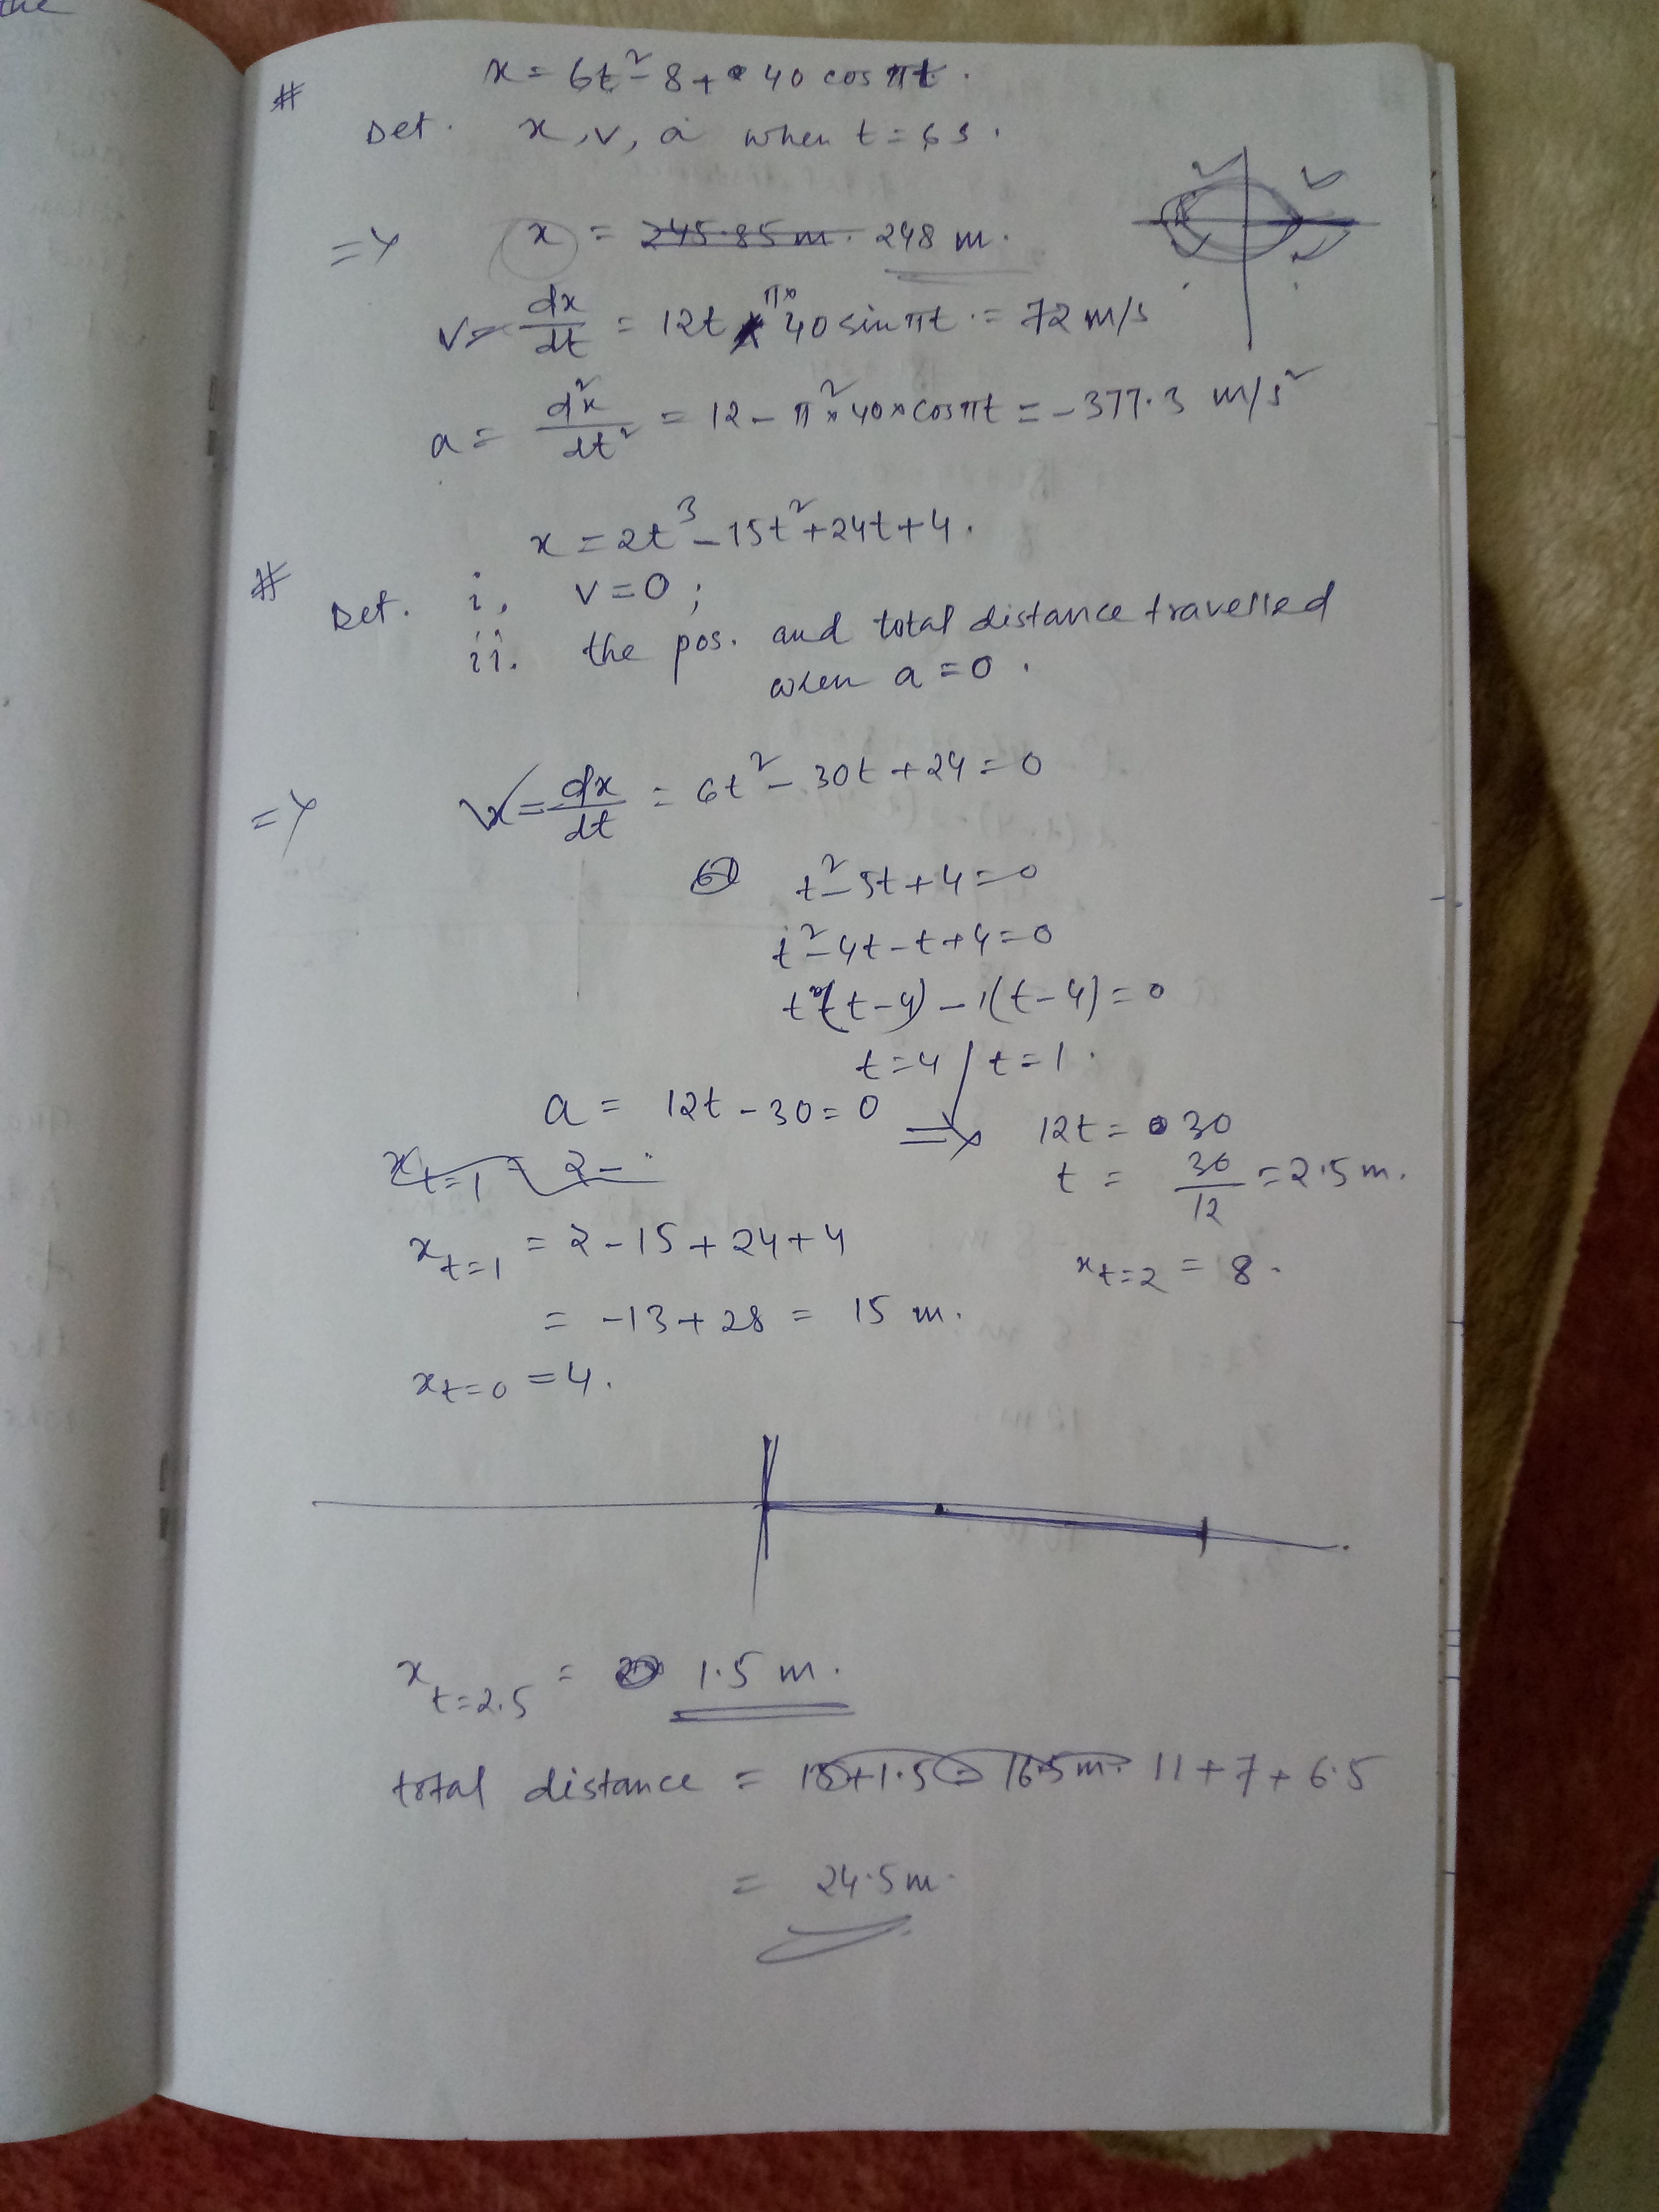 the
# x = 6t² - 8 + 40 cos πt.
Det. x, v, a when t = 6s.
=> x = 245.85 m. 248 m.
v = dx/dt = 12t π× 40 sin πt. = 72 m/s
a = d²x/dt² = 12 - π² × 40 × cos πt = -377.3 m/s²
x = 2t³ - 15t² + 24t + 4.
# Det. i, v = 0;
ii. the pos. and total distance travelled
when a = 0.
=> v = dx/dt = 6t² - 30t + 24 = 0
t² - 5t + 4 = 0
t² - 4t - t + 4 = 0
t(t-4) - 1(t-4) = 0
t = 4 / t = 1.
a = 12t - 30 = 0 => 12t = 30
x t=1 = 2 -
t = 30/12 = 2.5 m.
x t=1 = 2 - 15 + 24 + 4
x t=2 = 8.
= -13 + 28 = 15 m.
x t=0 = 4.
x t=2.5 = 1.5 m.
total distance = 15+1.5 = 16.5 m. 11 + 7 + 6.5
= 24.5 m.